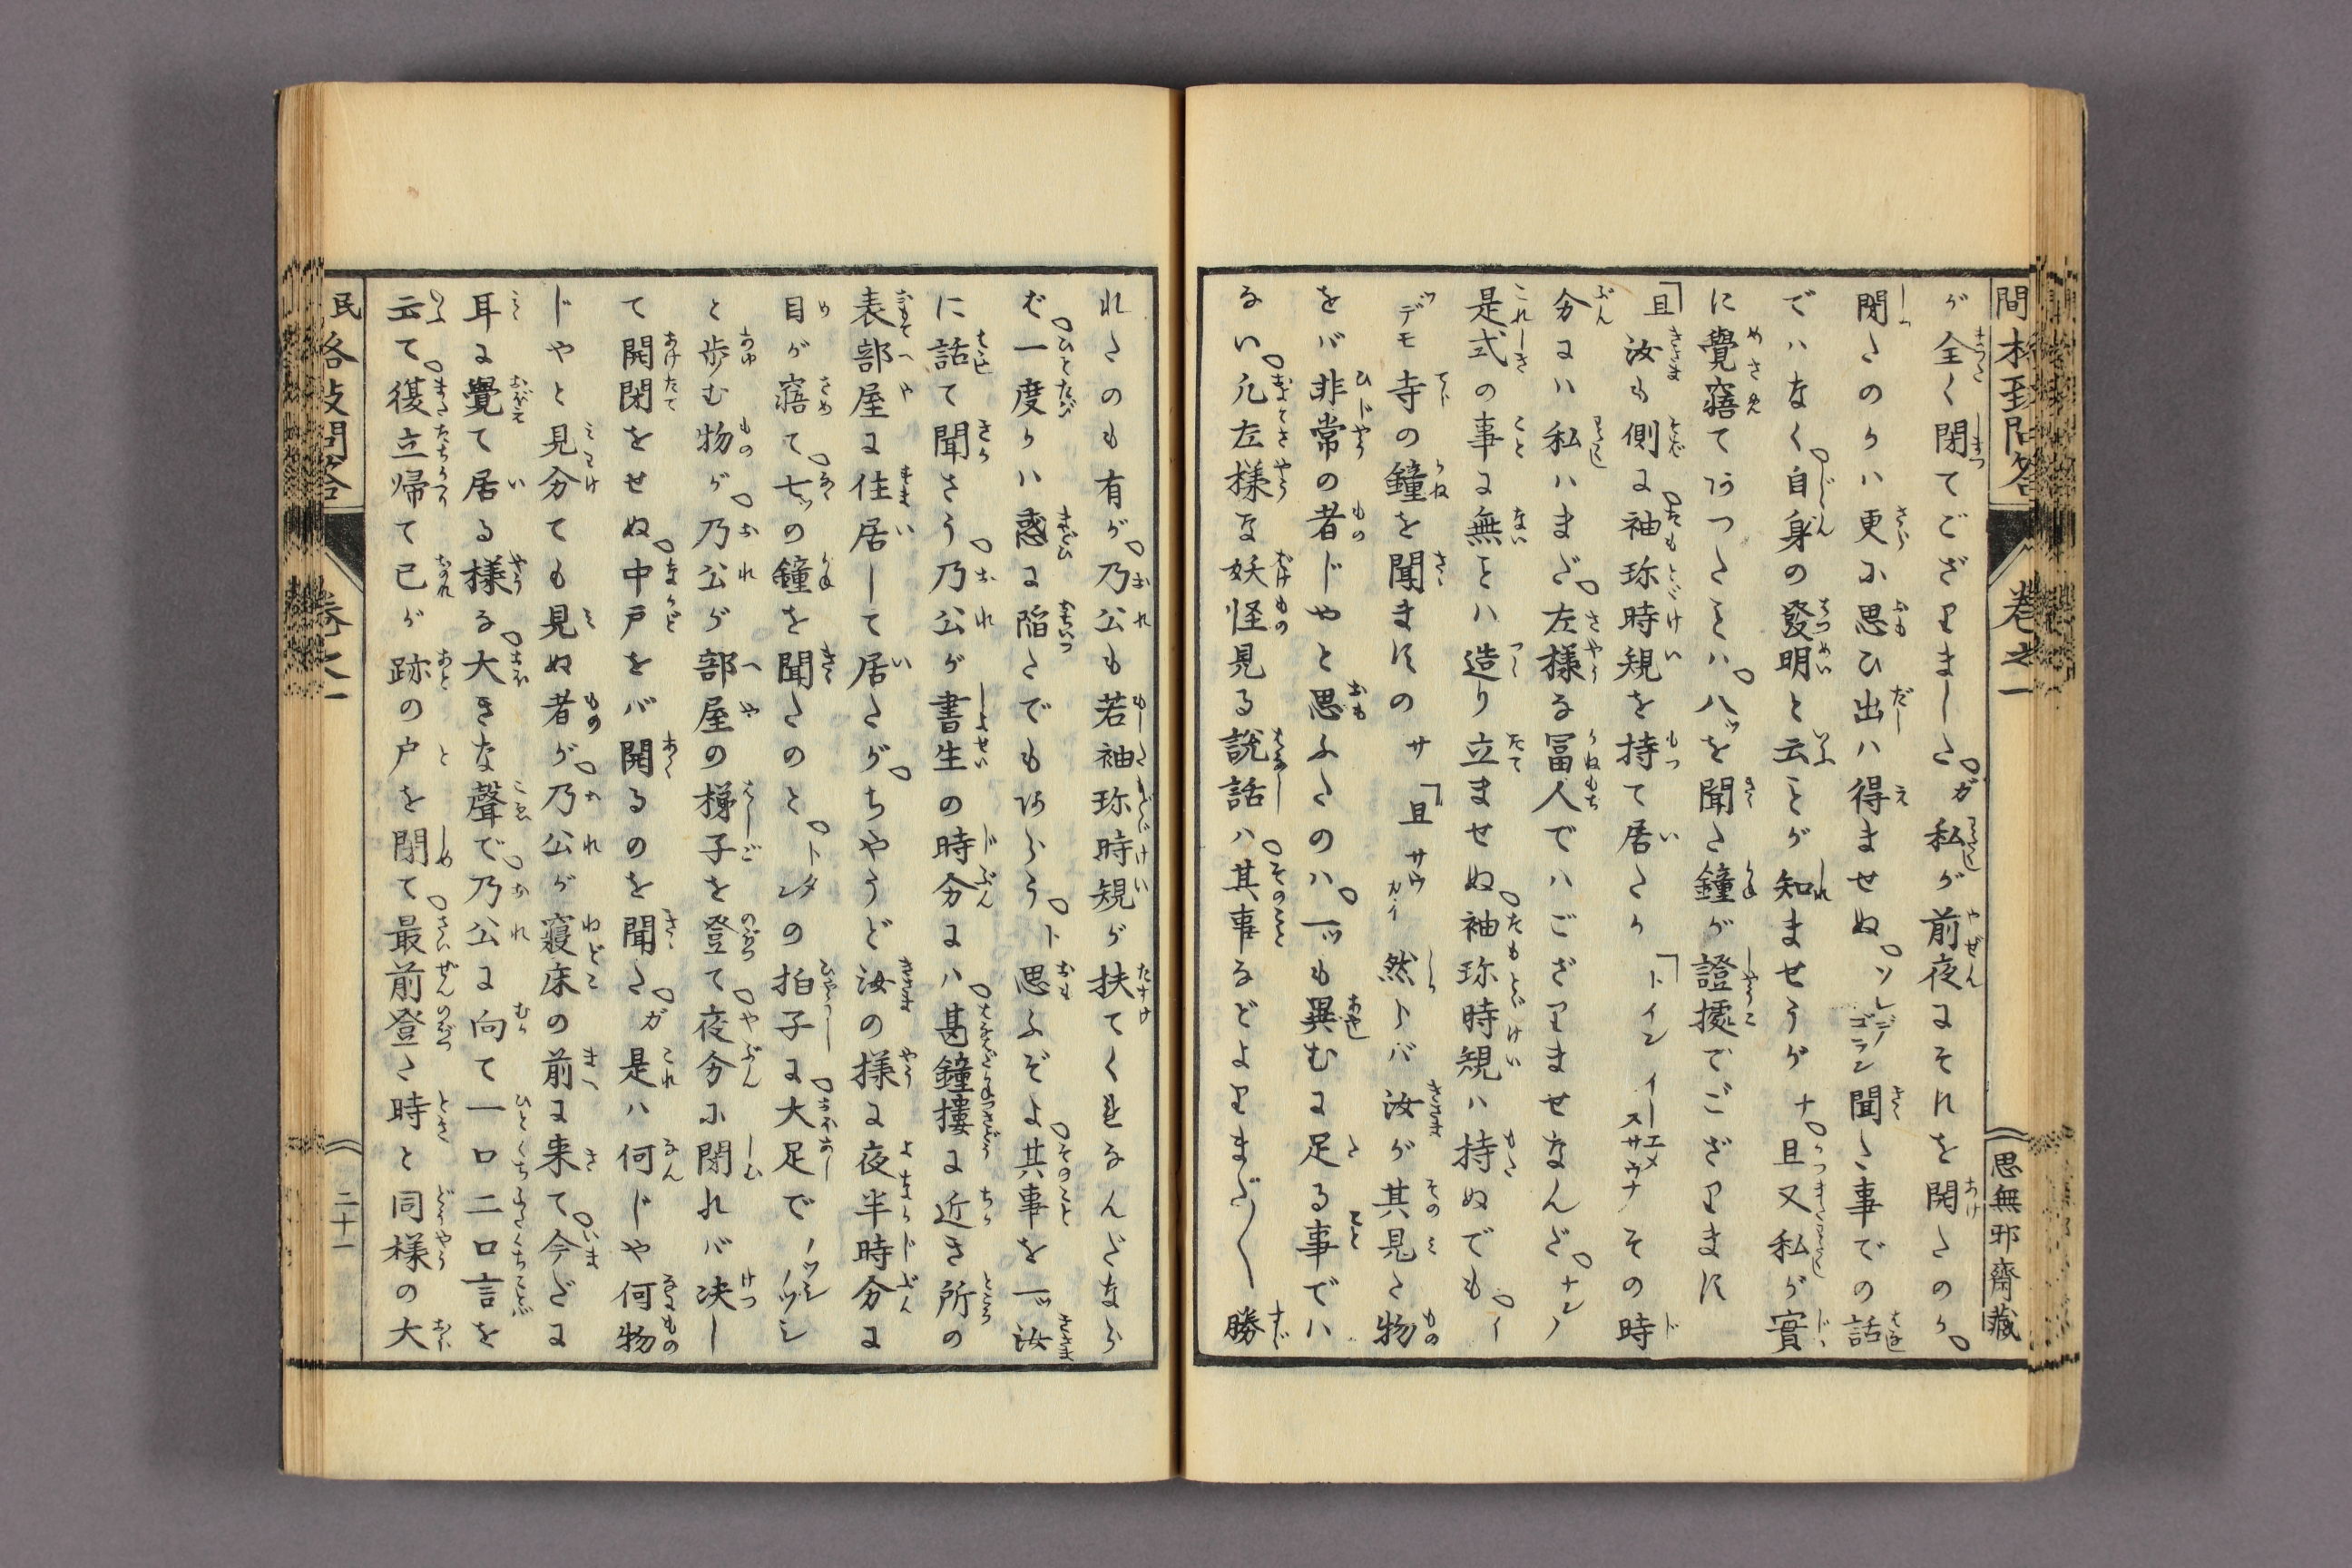 卷之一
思無邪齋藏
が全く閉てござりました。ガ私が前夜にそれを開たのか。
閉たのかハ更に思ひ出ハ得ませぬ。ソレデゴラン聞た事での話
でハなく。自身の發明と云ことが知ませうがナ。且又私が實
に覺寤てあつたことハ。八ツを聞た鐘が證據でござります
「旦 汝も側に。袖珎時規を持て居たか 「トイン イーエメスサウナその時
分にハ私ハまだ。左様な冨人でハござりませなんだ。ナンノ
是式の事に無ことハ造り立ませぬ。袖珎時規ハ持ぬでも。イ
ツデモ寺の鐘を聞ますのサ 「旦 サウカイ然らバ汝が其見た物
をバ非常の者じやと思ふたのハ。一ツも異むに足る事でハ
ない。凡左様な妖怪見る説話ハ。其事などよりまだ〱勝
れたのも有が。乃公も若袖珎時規が扶てくれなんだなら
ば。一度かハ惑に陥たでもあらう。ト思ふぞよ。其事を一ツ汝
に話て聞さう。乃公が書生の時分にハ。甚鐘摟に近き所の
表部屋に住居して居たが。ちやうど汝の様に夜半時分に
目が寤て。七ツの鐘を聞たのと。トタンの拍子に。大足でノツシノツシ
と歩む物が。乃公が部屋の梯子を登て。夜分に閉れバ决し
て開閉をせぬ。中戸をバ開るのを聞た。ガ是ハ何じや何物
じやと見分ても見ぬ者が。乃公が寢床の前に来て。今だに
耳に覺て居る様な。大きな聲で。乃公に向て一口二口言を
云て。復立帰て己が跡の戸を閉て。最前登た時と同様の大
卷之一
二十一